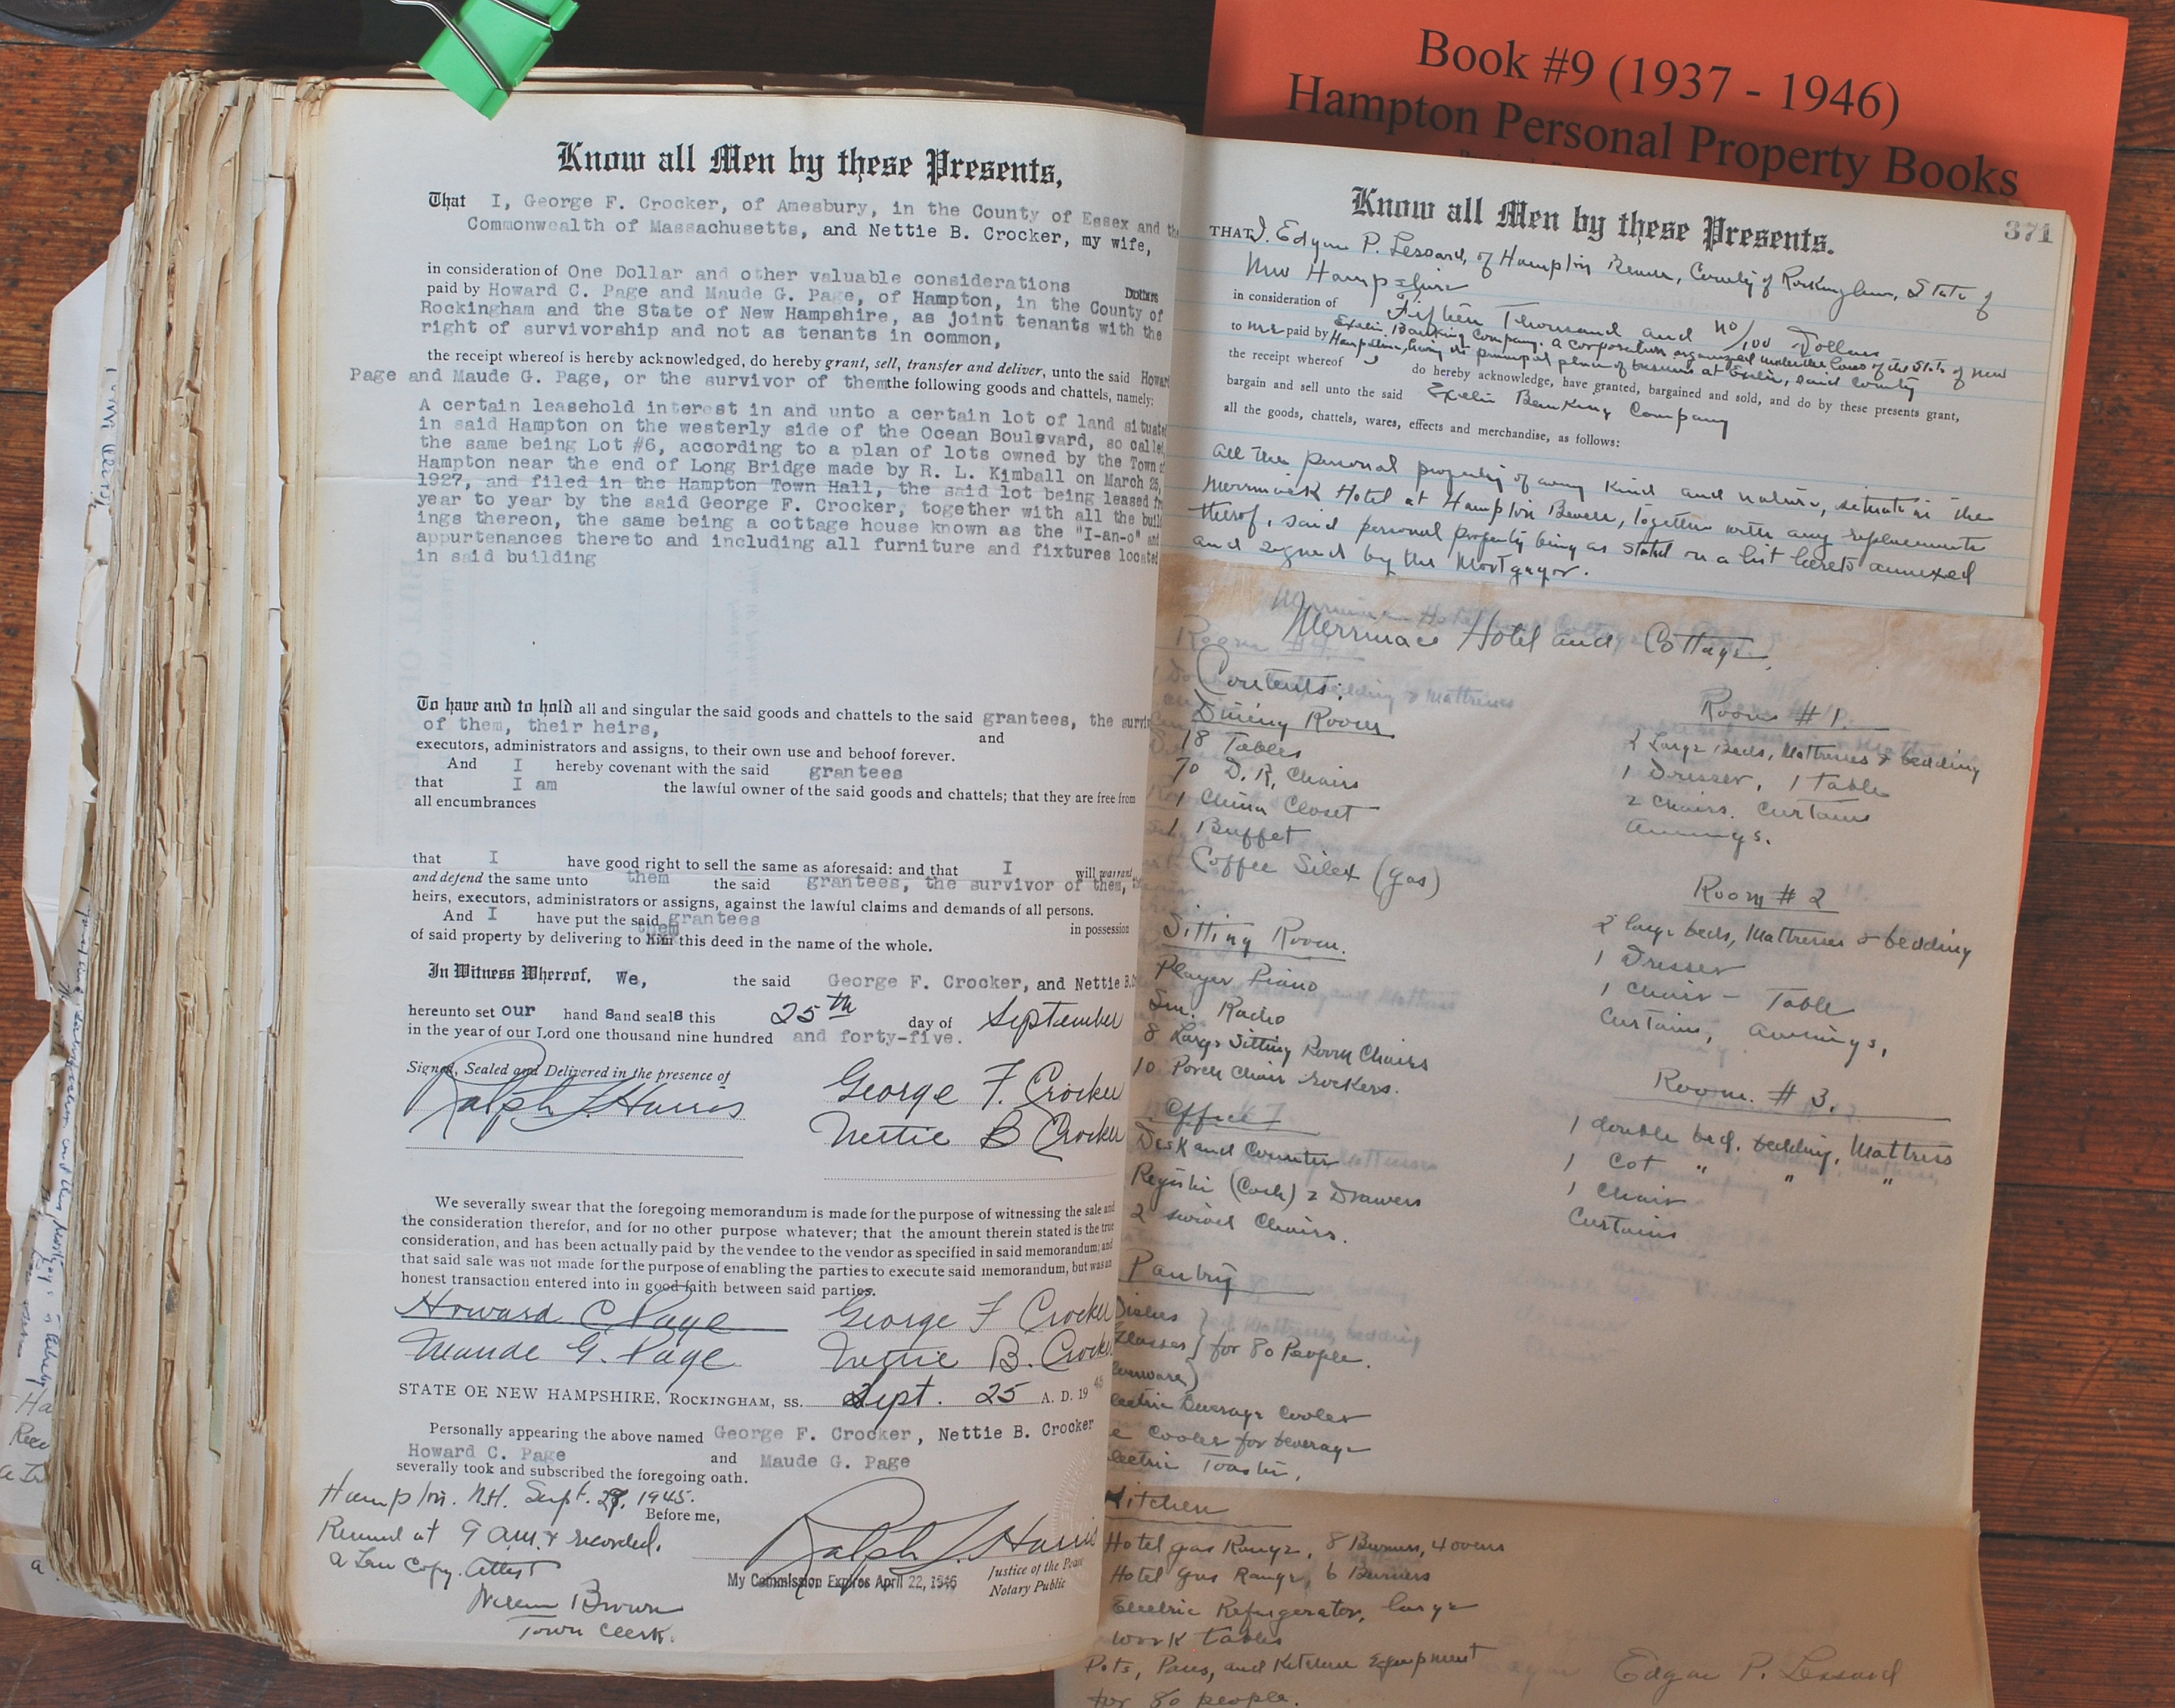 Book #9 (1937 - 1946)
Hampton Personal Property Books
Know all Men by these Presents,
That I, George F. Crocker, of Amesbury, in the County of Essex and the
Commonwealth of Massachusetts, and Nettie B. Crocker, my wife,
in consideration of One Dollar and other valuable considerations Dollars
paid by Howard C. Page and Maude G. Page, of Hampton, in the County of
Rockingham and the State of New Hampshire, as joint tenants with the
right of survivorship and not as tenants in common,
the receipt whereof is hereby acknowledged, do hereby grant, sell, transfer and deliver, unto the said Howard
Page and Maude G. Page, or the survivor of them the following goods and chattels, namely:
A certain leasehold interest in and unto a certain lot of land situate
in said Hampton on the westerly side of the Ocean Boulevard, so called
the same being Lot #6, according to a plan of lots owned by the Town of
Hampton near the end of Long Bridge made by R. L. Kimball on March 25,
1927, and filed in the Hampton Town Hall, the said lot being leased
year to year by the said George F. Crocker, together with all the buil
ings thereon, the same being a cottage house known as the "I-an-o" and
appurtenances thereto and including all furniture and fixtures located
in said building
To have and to hold all and singular the said goods and chattels to the said grantees, the survi
of them, their heirs, and
executors, administrators and assigns, to their own use and behoof forever.
And I hereby covenant with the said grantees
that I am the lawful owner of the said goods and chattels; that they are free from
all encumbrances
that I have good right to sell the same as aforesaid: and that I will warrant
and defend the same unto them the said grantees, the survivor of them,
heirs, executors, administrators or assigns, against the lawful claims and demands of all persons.
And I have put the said grantees in possession
of said property by delivering to them this deed in the name of the whole.
In Witness Whereof, We, the said George F. Crocker, and Nettie B.
hereunto set our hand s and seals this 25th day of September
in the year of our Lord one thousand nine hundred and forty-five.
Signed, Sealed and Delivered in the presence of
Ralph J Harris George F. Crocker
Nettie B Crocker
We severally swear that the foregoing memorandum is made for the purpose of witnessing the sale and
the consideration therefor, and for no other purpose whatever; that the amount therein stated is the true
consideration, and has been actually paid by the vendee to the vendor as specified in said memorandum; and
that said sale was not made for the purpose of enabling the parties to execute said memorandum, but was an
honest transaction entered into in good faith between said parties.
Howard C Page George F Crocker
Maude G. Page Nettie B. Crocker
STATE OF NEW HAMPSHIRE, ROCKINGHAM, SS. Sept. 25 A. D. 19 45
Personally appearing the above named George F. Crocker, Nettie B. Crocker
Howard C. Page and Maude G. Page
severally took and subscribed the foregoing oath.
Hampton. N.H. Sept. 27, 1945.
Before me,
Received at 9 A.M. & recorded.
A True Copy. Attest
Ralph J. Harris
Justice of the Peace
Notary Public
My Commission Expires April 22, 1946
William Brown
Town Clerk.
371
Know all Men by these Presents.
THAT I, Edgar P. Lessard, of Hampton Beach, County of Rockingham, State of
New Hampshire
in consideration of Fifteen Thousand and no/100 Dollars
to me paid by Exeter Banking Company, a corporation organized under the laws of the State of New
Hampshire, having its principal place of business at Exeter, said County
the receipt whereof I do hereby acknowledge, have granted, bargained and sold, and do by these presents grant,
bargain and sell unto the said Exeter Banking Company
all the goods, chattels, wares, effects and merchandise, as follows:
All the personal property of every kind and nature, situate in the
Merrimack Hotel at Hampton Beach, together with any replacements
thereof, said personal property being as stated on a list hereto annexed
and signed by the Mortgagor.
Merrimac Hotel and Cottage.
Contents:
Dining Room
18 Tables
70 D. R. Chairs
1 China Closet
1 Buffet
Coffee Silex (gas)
Sitting Room.
Player Piano
Sm. Radio
8 Large Sitting Room Chairs
10 Porch Chair rockers.
Office
Desk and Counter
Register (Cash) 2 Drawers
2 swivel Chairs.
Pantry
Dishes
Glasses } for 80 People.
Electric Beverage Cooler
Cooler for beverage
Electric Toaster,
Kitchen
Hotel gas Range, 8 Burners, 4 ovens
Hotel Gas Range, 6 Burners
Electric Refrigerator, large
work tables
Pots, Pans, and Kitchen Equipment
for 80 people.
Room #1.
2 Large Beds, Mattresses & bedding
1 Dresser, 1 Table
2 Chairs. Curtains
Awnings.
Room #2
2 large beds, Mattresses & bedding
1 Dresser
1 Chair - Table
Curtains, Awnings,
Room. #3.
1 double bed. bedding, Mattress
1 Cot " " "
1 Chair
Curtains
Edgar P. Lessard